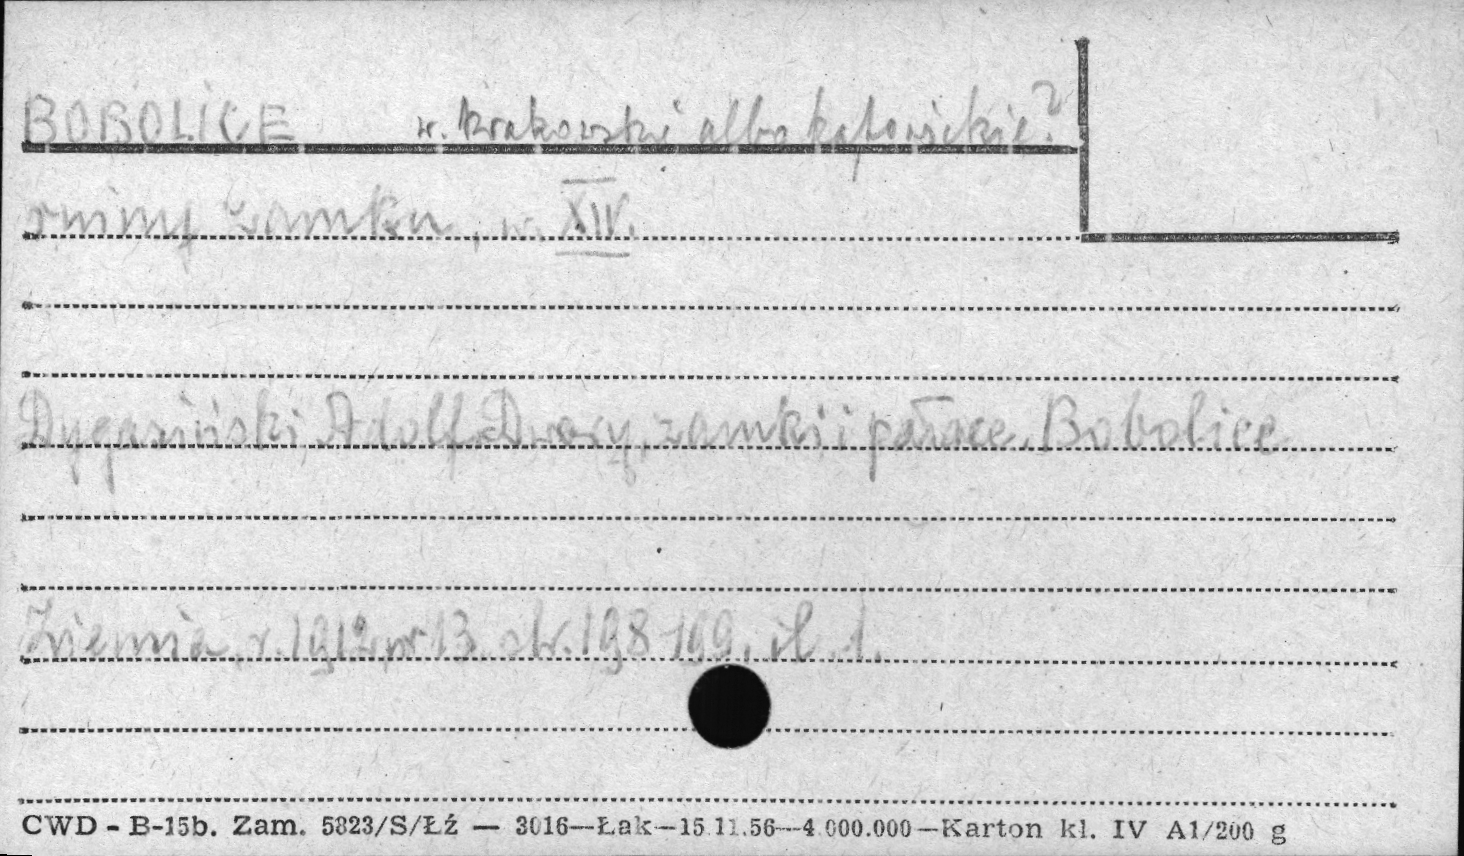 BOBOLICE w. krakowskie albo katowickie?
ruiny zamku, w. XIV.
Dygasiński Adolf. Dwory, zamki i pałace. Bobolice
Ziemia, r. 1912, nr 13. str. 198-199, il. 1.
CWD - B-15b. Zam. 5823/S/Łź — 3016—Łak—15.11.56—4.000.000—Karton kl. IV A1/200 g